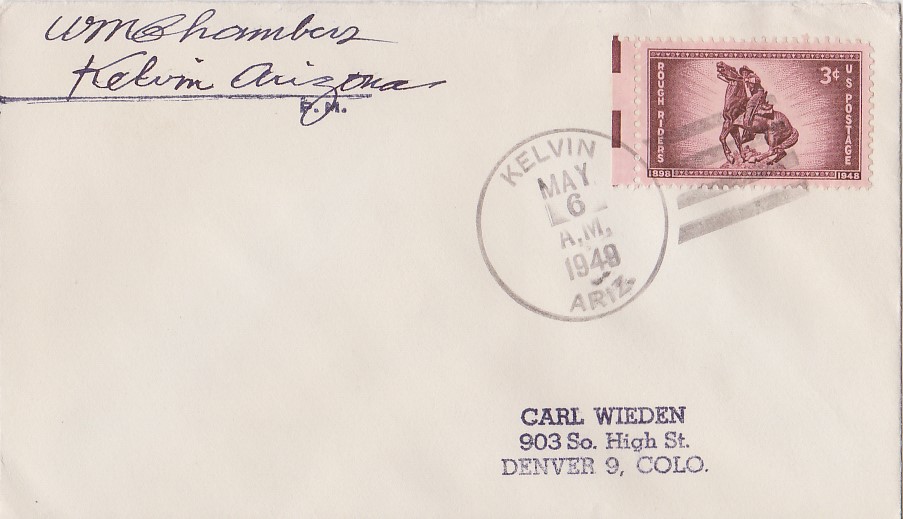 Wm Chambers
Kelvin Arizona
P. M.
ROUGH RIDERS
3¢
U S POSTAGE
1898 1948
KELVIN
MAY
6
A.M.
1949
ARIZ.
CARL WIEDEN
903 So. High St.
DENVER 9, COLO.